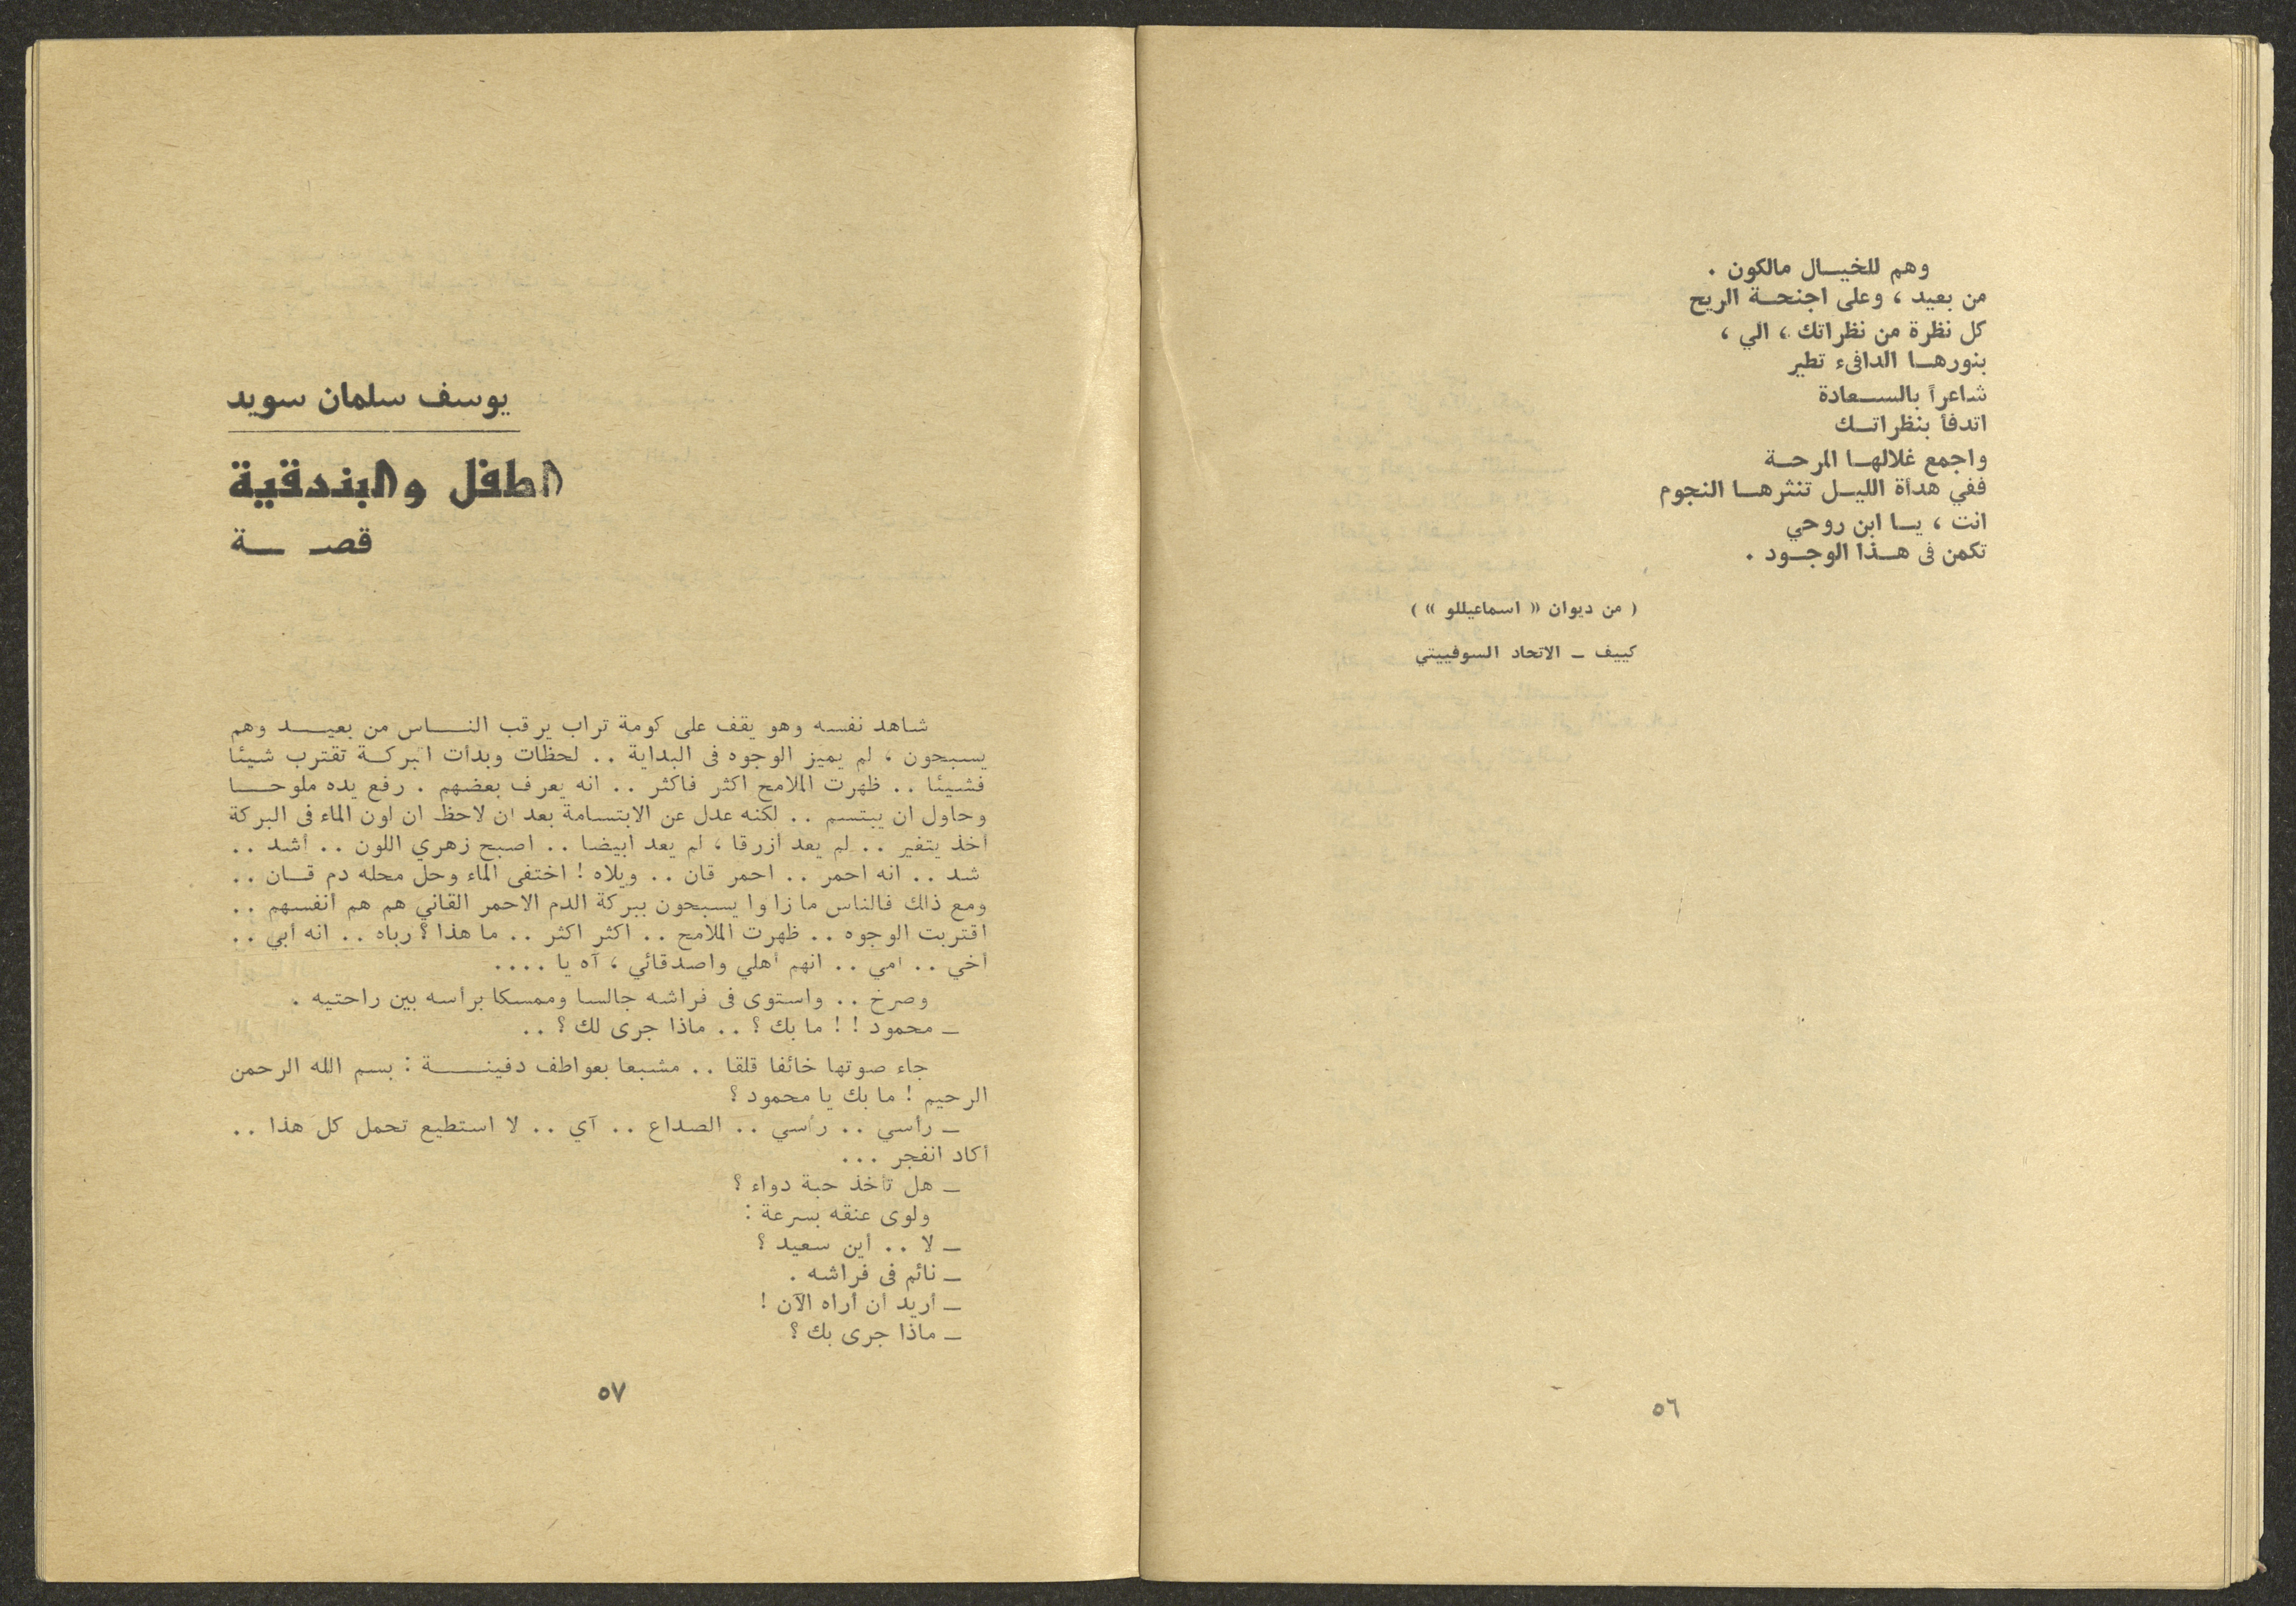 وهم للخيـال مالكون .
من بعيد ، وعلى اجنحـة الريح
كل نظرة من نظراتك ، الي ،
بنورهـا الدافىء تطير
شاعراً بالسـعادة
اتدفأ بنظراتـك
واجمع غلالهـا المرحـة
ففي هدأة الليـل تنثرهـا النجوم
انت ، يـا ابن روحي
تكمن فى هـذا الوجـود .
( من ديوان « اسماعيللو » )
كييف ـ الاتحاد السوفييتي
٥٦
يوسف سلمان سويد
الطفل والبندقية
قصـة
شاهد نفسه وهو يقف على كومة تراب يرقب النـاس من بعيـد وهم
يسبحون ، لم يميز الوجوه فى البداية . . لحظات وبدأت البركـة تقترب شيئا
فشيئا . . ظهرت الملامح اكثر فاكثر . . انه يعرف بعضهم . رفع يده ملوحـا
وحاول ان يبتسم . . لكنه عدل عن الابتسامة بعد ان لاحظ ان لون الماء فى البركة
أخذ يتغير . . لم يعد أزرقا ، لم يعد ابيضا . . اصبح زهري اللون . . أشد . .
شد . . انه احمر . . احمر قان . . ويلاه ! اختفى الماء وحل محله دم قـان . .
ومع ذلك فالناس ما زا وا يسبحون ببركة الدم الاحمر القاني هم هم أنفسهم . .
اقتربت الوجوه . . ظهرت الملامح . . اكثر اكثر . . ما هذا ؟ رباه . . انه أبي . .
أخي . . امي . . انهم أهلي واصدقائي ، آه يا . . . .
وصرخ . . واستوى فى فراشه جالسا وممسكا برأسه بين راحتيه .
ـ محمود ! ! ما بك ؟ . . ماذا جرى لك ؟ . .
جاء صوتها خائفا قلقا . . مشبعا بعواطف دفينـة : بسم الله الرحمن
الرحيم ! ما بك يا محمود ؟
ـ رأسي . . رأسي . . الصداع . . آي . . لا استطيع تحمل كل هذا . .
أكاد انفجر . . .
ـ هل تأخذ حبة دواء ؟
ولوى عنقه بسرعة :
ـ لا . . أين سعيد ؟
ـ نائم فى فراشه .
ـ أريد أن أراه الآن !
ـ ماذا جرى بك ؟
٥٧